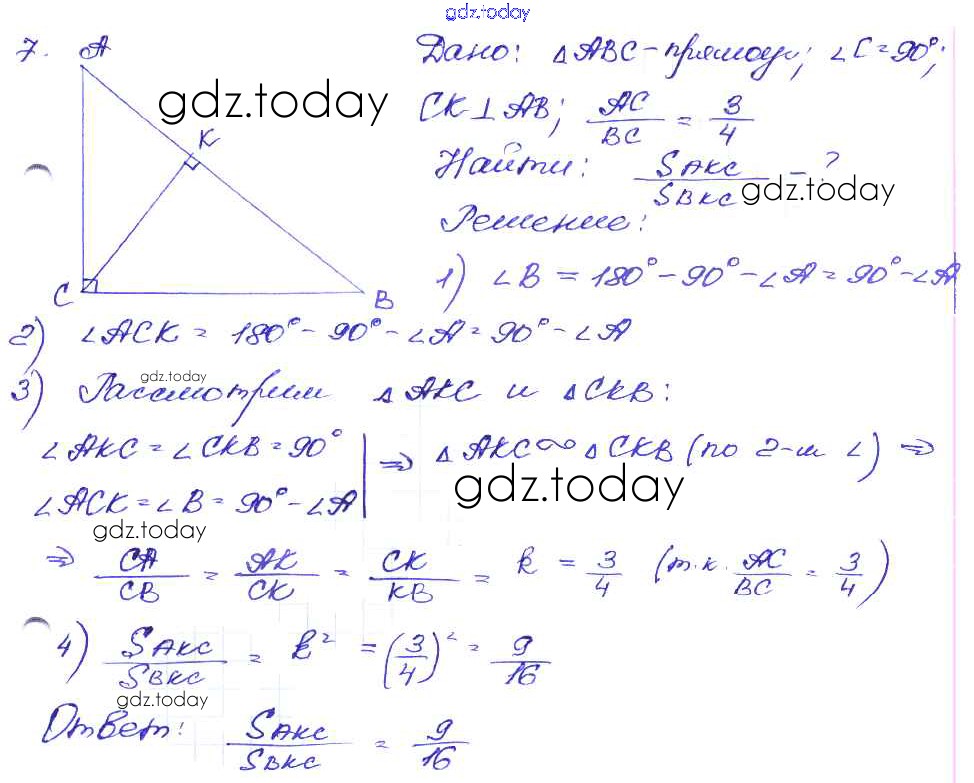 gdz.today
7. A
Дано: △ABC - прямоуг; ∠C = 90°;
gdz.today
CK ⊥ AB; AC/BC = 3/4
K
Найти: S AKC / S BKC - ?
gdz.today
Решение:
1) ∠B = 180° - 90° - ∠A = 90° - ∠A
C B
2) ∠ACK = 180° - 90° - ∠A = 90° - ∠A
gdz.today
3) Рассмотрим △AKC и △CKB:
∠AKC = ∠CKB = 90° | ⇒ △AKC ∾ △CKB (по 2-м ∠) ⇒
gdz.today
∠ACK = ∠B = 90° - ∠A
gdz.today
⇒ CA/CB = AK/CK = CK/KB = k = 3/4 (т.к. AC/BC = 3/4)
4) S AKC / S BKC = k² = (3/4)² = 9/16
gdz.today
Ответ: S AKC / S BKC = 9/16